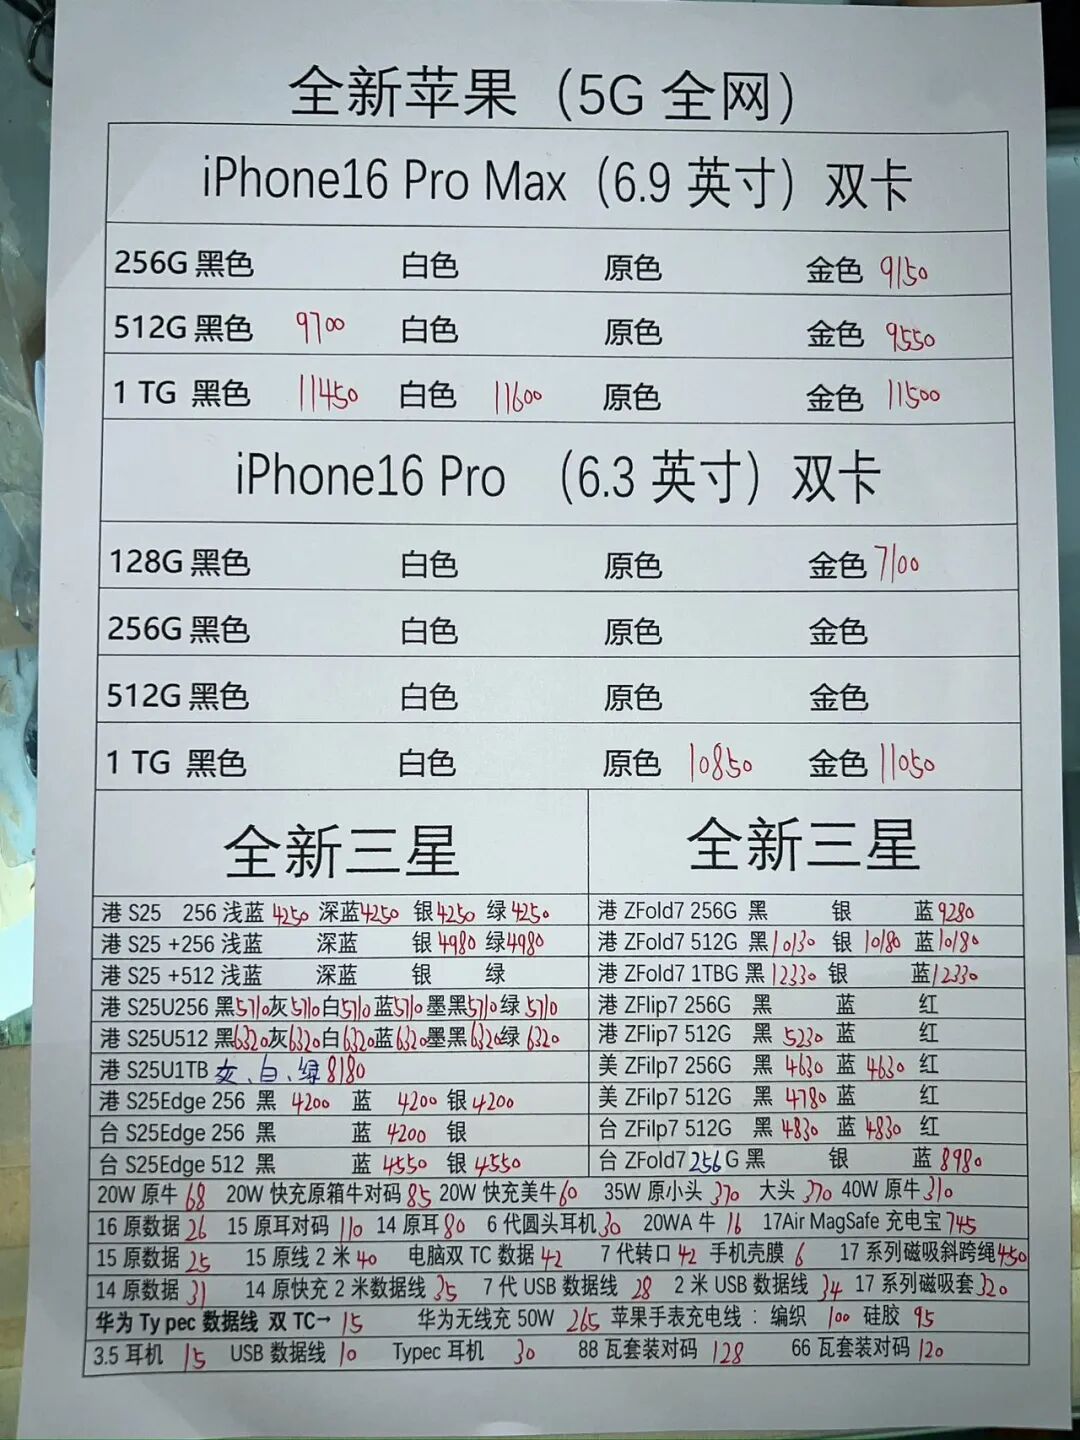 全新苹果（5G 全网）
iPhone16 Pro Max（6.9 英寸）双卡
256G 黑色 白色 原色 金色 9150
512G 黑色 9700 白色 原色 金色 9550
1 TG 黑色 11450 白色 11600 原色 金色 11500
iPhone16 Pro （6.3 英寸）双卡
128G 黑色 白色 原色 金色 7100
256G 黑色 白色 原色 金色
512G 黑色 白色 原色 金色
1 TG 黑色 白色 原色 10850 金色 11050
全新三星
港 S25 256 浅蓝 4250 深蓝 4250 银 4250 绿 4250
港 S25 +256 浅蓝 深蓝 银 4980 绿 4980
港 S25 +512 浅蓝 深蓝 银 绿
港 S25U256 黑 5710 灰 5710 白 5710 蓝 5710 墨黑 5710 绿 5710
港 S25U512 黑 6320 灰 6320 白 6320 蓝 6320 墨黑 6320 绿 6320
港 S25U1TB 白、绿 8180
港 S25Edge 256 黑 4200 蓝 4200 银 4200
台 S25Edge 256 黑 蓝 4200 银
台 S25Edge 512 黑 蓝 4550 银 4550
全新三星
港 ZFold7 256G 黑 银 蓝 9280
港 ZFold7 512G 黑 10130 银 10180 蓝 10180
港 ZFold7 1TBG 黑 12330 银 蓝 12330
港 ZFlip7 256G 黑 蓝 红
港 ZFlip7 512G 黑 5230 蓝 红
美 ZFilp7 256G 黑 4630 蓝 4630 红
美 ZFilp7 512G 黑 4780 蓝 红
台 ZFilp7 512G 黑 4830 蓝 4830 红
台 ZFold7 256 G 黑 银 蓝 8980
20W 原牛 68 20W 快充原箱牛对码 85 20W 快充美牛 60 35W 原小头 370 大头 370 40W 原牛 310
16 原数据 26 15 原耳对码 110 14 原耳 80 6 代圆头耳机 30 20WA 牛 16 17Air MagSafe 充电宝 745
15 原数据 25 15 原线 2 米 40 电脑双 TC 数据 42 7 代转口 42 手机壳膜 6 17 系列磁吸斜跨绳 450
14 原数据 31 14 原快充 2 米数据线 35 7 代 USB 数据线 28 2 米 USB 数据线 34 17 系列磁吸套 320
华为 Ty pec 数据线 双 TC→ 15 华为无线充 50W 265 苹果手表充电线 : 编织 100 硅胶 95
3.5 耳机 15 USB 数据线 10 Typec 耳机 30 88 瓦套装对码 128 66 瓦套装对码 120